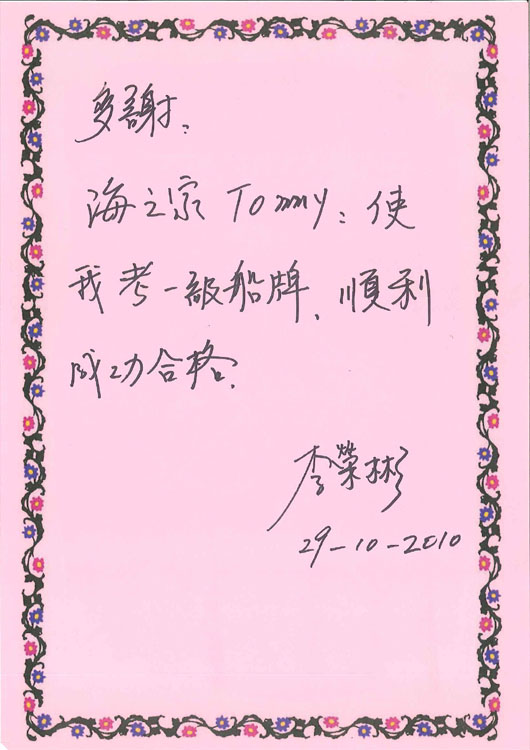 多謝：
海之家 Tommy：使
我考一級船牌，順利
成功合格。
李榮彬
29-10-2010